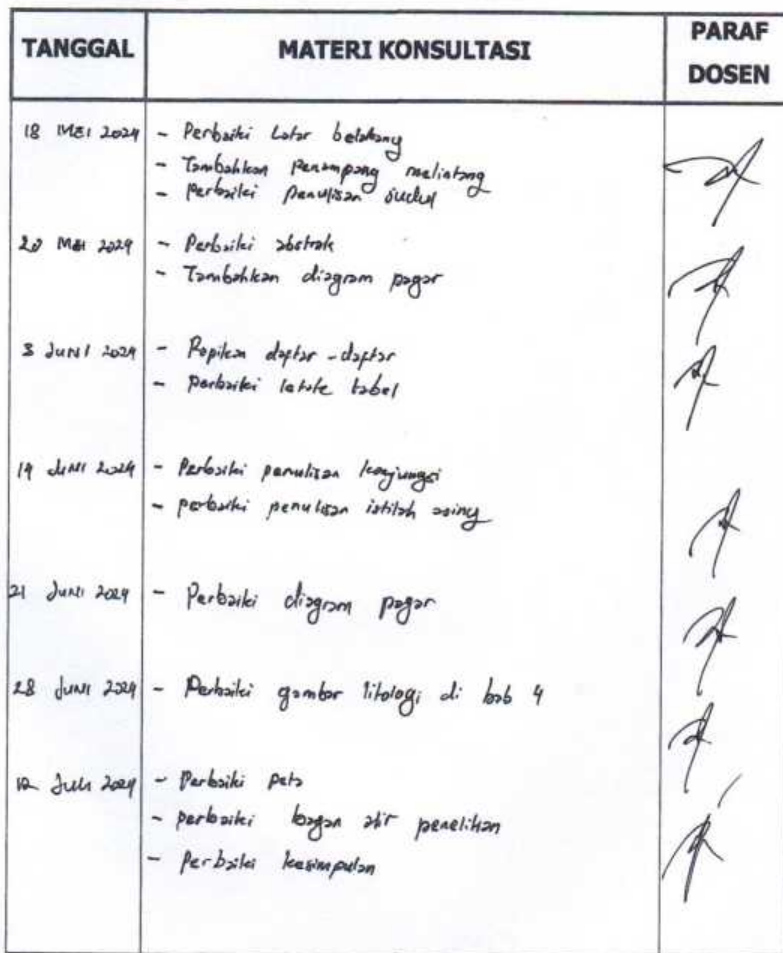 TANGGAL
MATERI KONSULTASI
PARAF
DOSEN
18 MEI 2024
- Perbaiki Latar belakang
- Tambahkan Penampang melintang
- Perbaiki Penulisan
20 Mei 2024
- Perbaiki abstrak
- Tambahkan diagram pagar
3 JUNI 2024
- Rapikan daftar-daftar
- Perbaiki letak tabel
14 JUNI 2024
- Perbaiki penulisan konjungsi
- perbaiki penulisan istilah asing
21 JUNI 2024
- Perbaiki diagram pagar
28 JUNI 2024
- Perbaiki gambar litologi di bab 4
12 Juli 2024
- Perbaiki peta
- perbaiki bagan alir penelitian
- Perbaiki kesimpulan